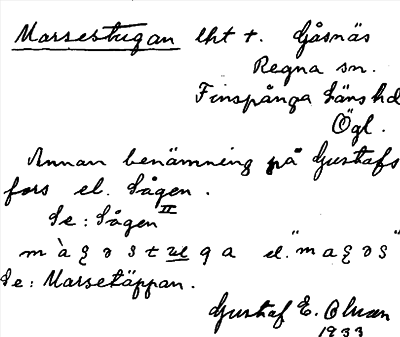 Marsestugan lht t. Gåsnäs
Regna sn.
Finspånga läns hd
Ögl.
Annan benämning på Gustafs
fors el. Sågen.
Se: Sågen II
Se: Marsetäppan.
Gustaf E. Olsson
1933